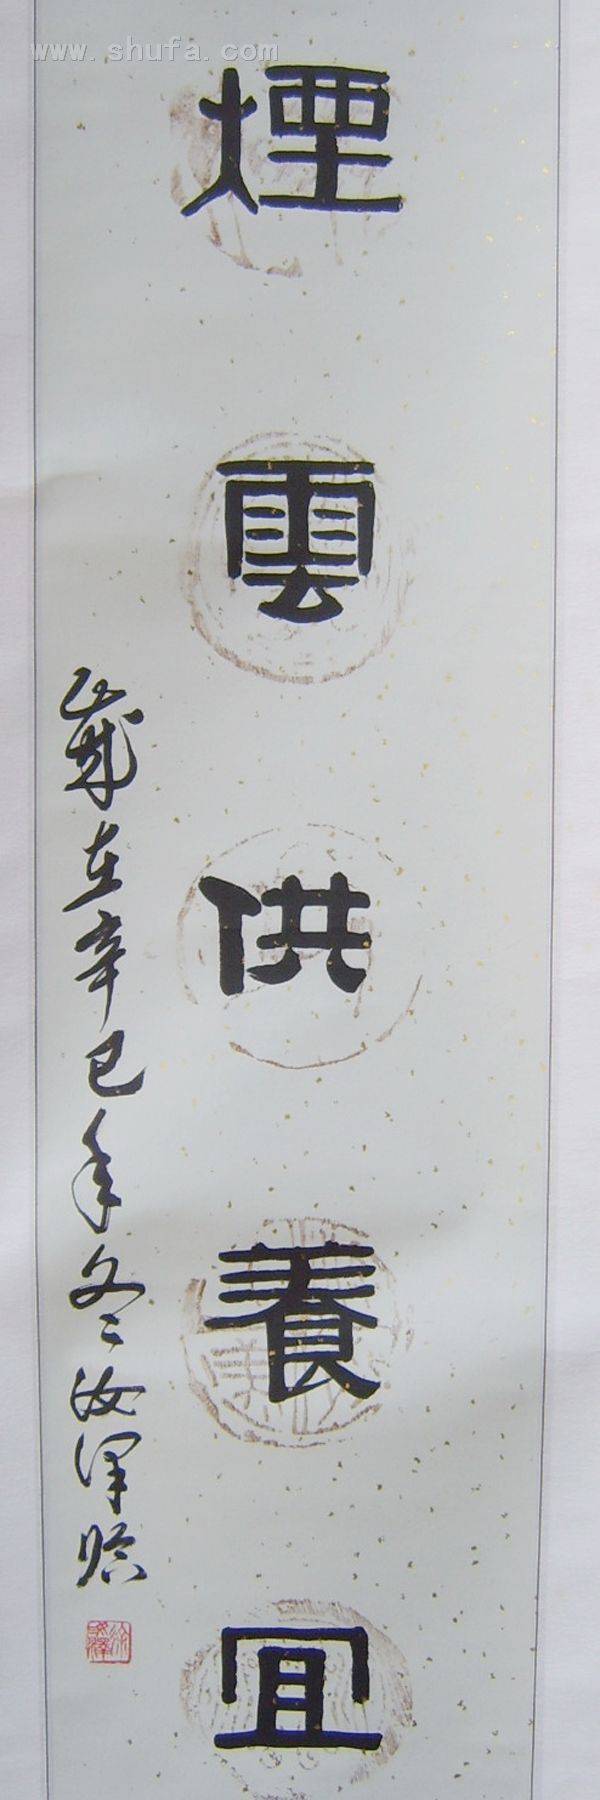 www.shufa.com
煙雲供養宜
歲在辛巳年冬汝澤賒